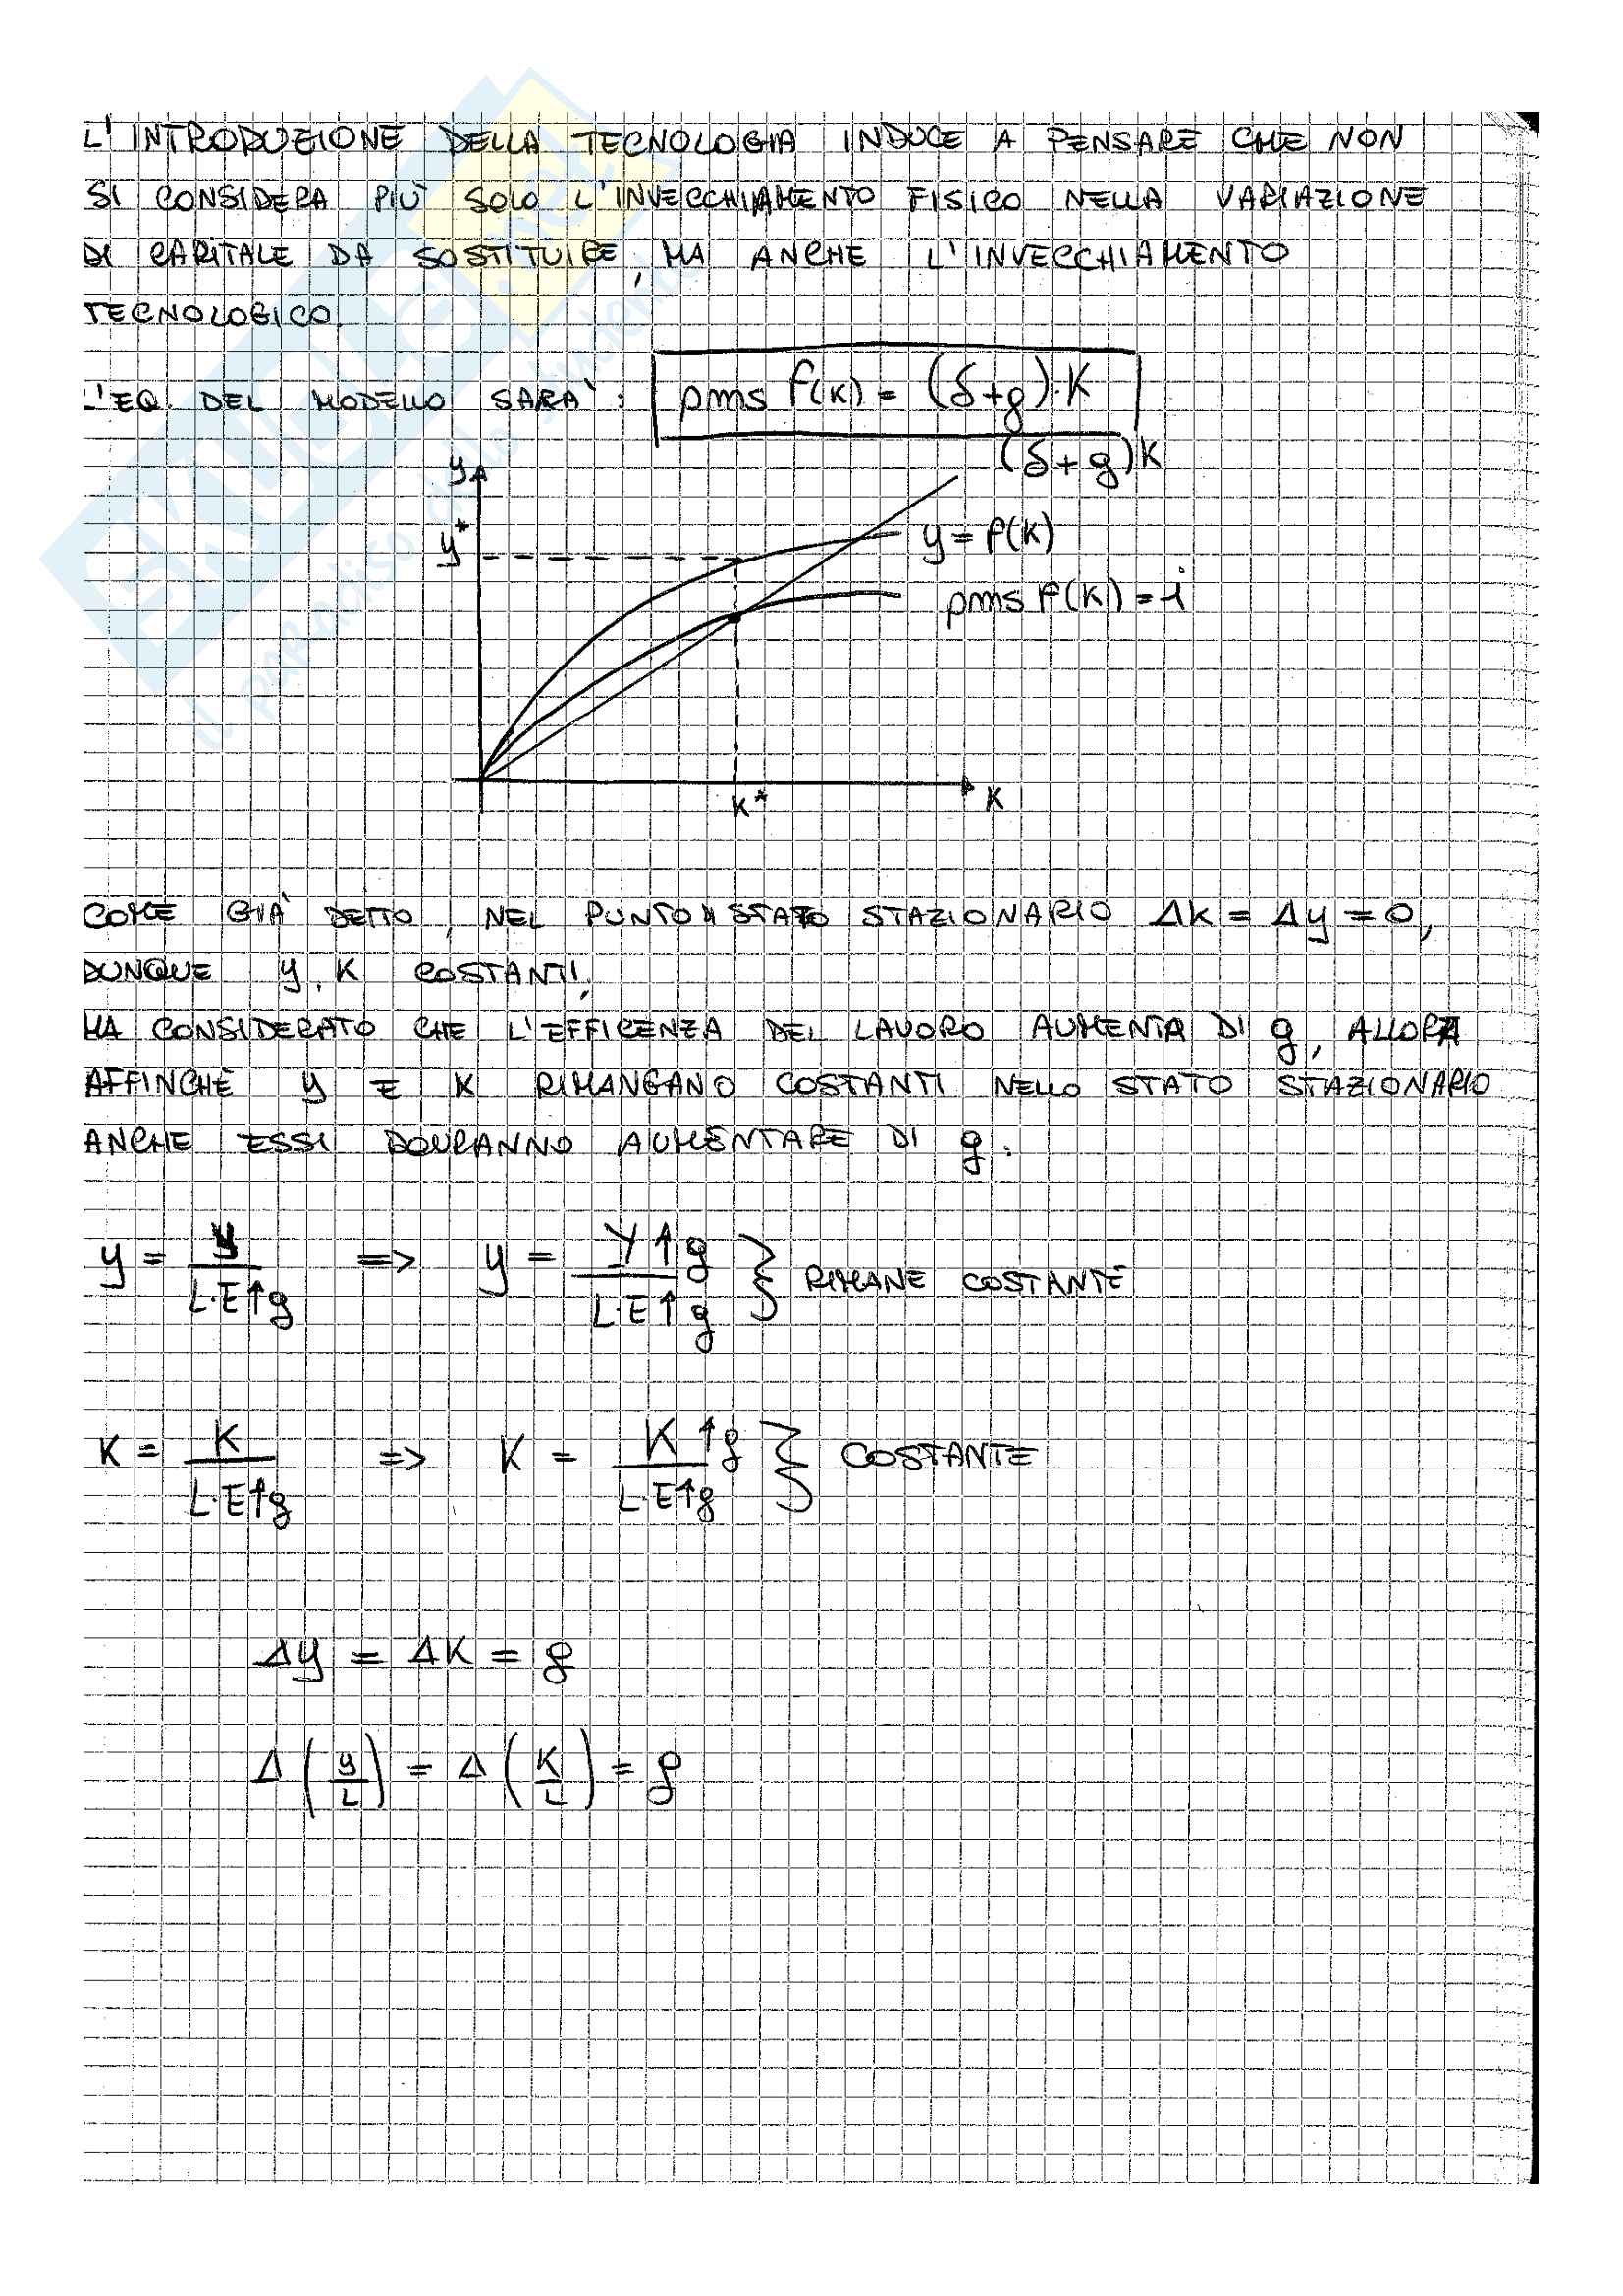 L'INTRODUZIONE DELLA TECNOLOGIA INDUCE A PENSARE CHE NON
SI CONSIDERA PIÙ SOLO L'INVECCHIAMENTO FISICO NELLA VARIAZIONE
DI CAPITALE DA SOSTITUIRE, MA ANCHE L'INVECCHIAMENTO
TECNOLOGICO.
L'EQ. DEL MODELLO SARA': pms f(K) = (δ+g)·K
(δ+g)K
y
y*
y = f(K)
pms f(K) = i
K*
K
COME GIÀ DETTO, NEL PUNTO DI STATO STAZIONARIO ΔK = Δy = 0,
DUNQUE y, K COSTANTI,
MA CONSIDERATO CHE L'EFFICENZA DEL LAVORO AUMENTA DI g, ALLORA
AFFINCHÈ y E K RIMANGANO COSTANTI NELLO STATO STAZIONARIO
ANCHE ESSI DOVRANNO AUMENTARE DI g:
y = Y / L·E↑g => y = Y↑g / L·E↑g } RIMANE COSTANTE
K = K / L·E↑g => K = K↑g / L·E↑g } COSTANTE
Δy = ΔK = g
Δ(y/L) = Δ(K/L) = g
SKUOLA.net
il paradiso dello studente